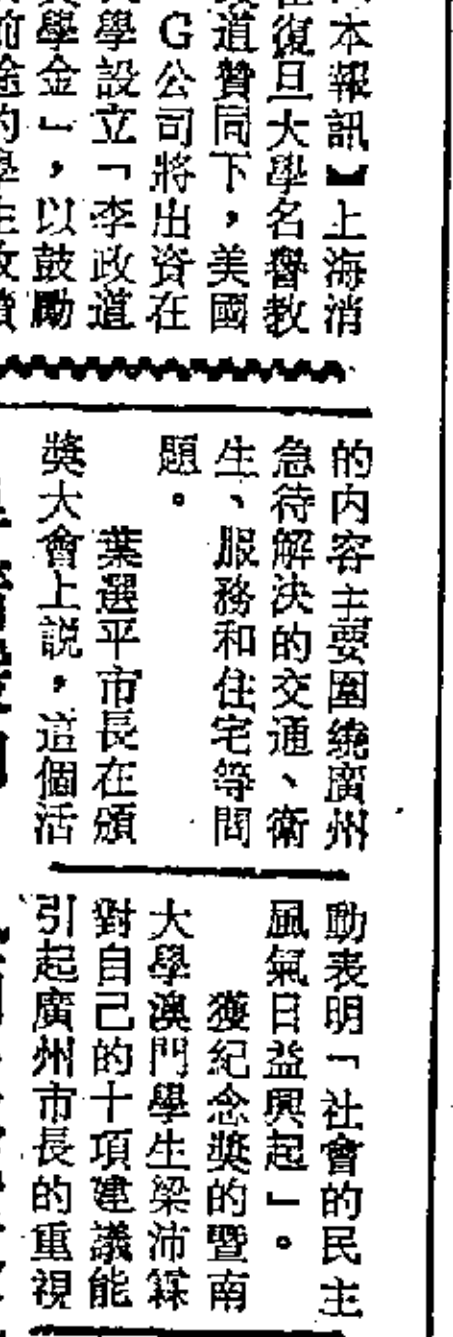 本報訊】上海消
復旦大學名譽教
道贊同下，美國
G公司將出資在
學設立「李政道
學金」，以鼓勵
的內容主要圍繞廣州
急待解決的交通、衛
生、服務和住宅等問
題。
葉選平市長在頒
獎大會上説，這個活
動表明「社會的民主
風氣日益興起」。
獲紀念獎的暨南
大學澳門學生梁沛霖
對自己的十項建議能
引起廣州市長的重視